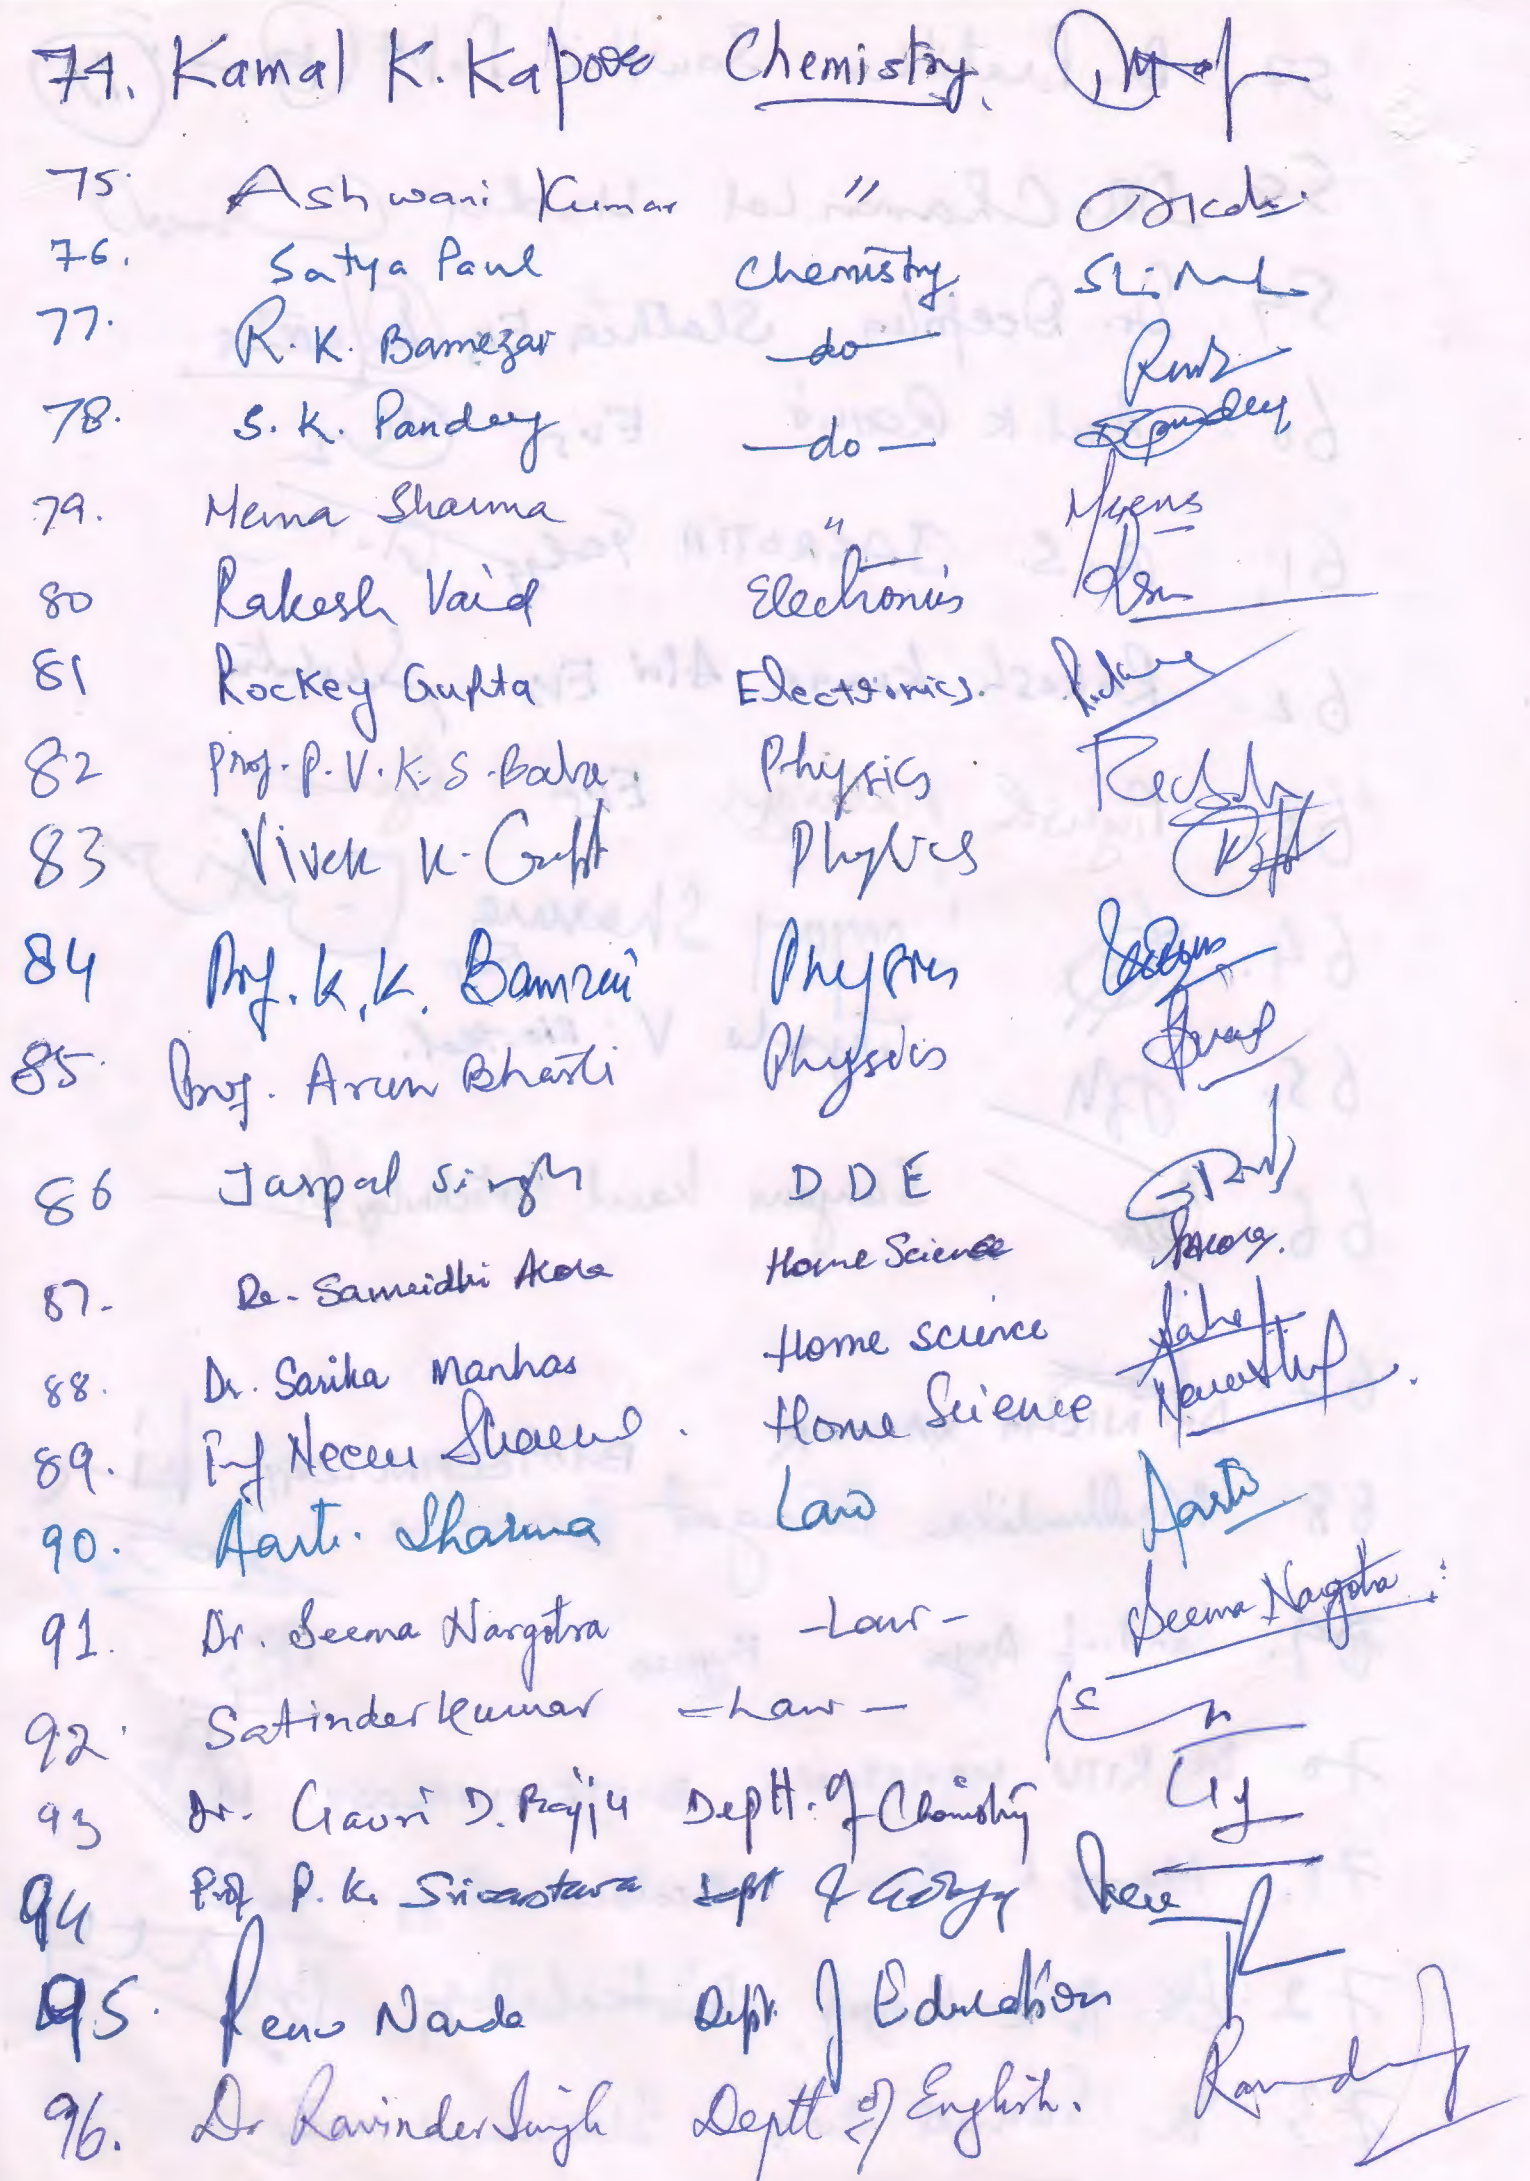 74. Kamal K. Kapoor Chemistry.
75. Ashwani Kumar "
76. Satya Paul Chemistry.
77. R. K. Bamezai —do—
78. S. K. Pandey —do— Spandey
79. Meena Sharma " Meena
80 Rakesh Vaid Electronics
81 Rockey Gupta Electronics.
82 Prof. P. V. K. S. Baba Physics
83 Vivek K. Gupta Physics
84 Prof. K. K. Bamzai Physics
85. Prof. Arun Bharti Physics
86 Jaspal Singh D D E
87. Dr. Samridhi Arora Home Science Arora.
88. Dr. Sarika Manhas Home Science
89. Prof Neeru Sharma. Home Science
90. Aarti Sharma Law Aarti
91. Dr. Seema Nargotra -Law- Seema Nargotra
92. Satinder Kumar -Law-
93 Dr. Gauri D. Bajju Deptt. of Chemistry
94 Prof P. K. Srivastava Dept of Geology
95. Renu Nanda Dept. of Education
96. Dr Ravinder Singh Deptt of English.